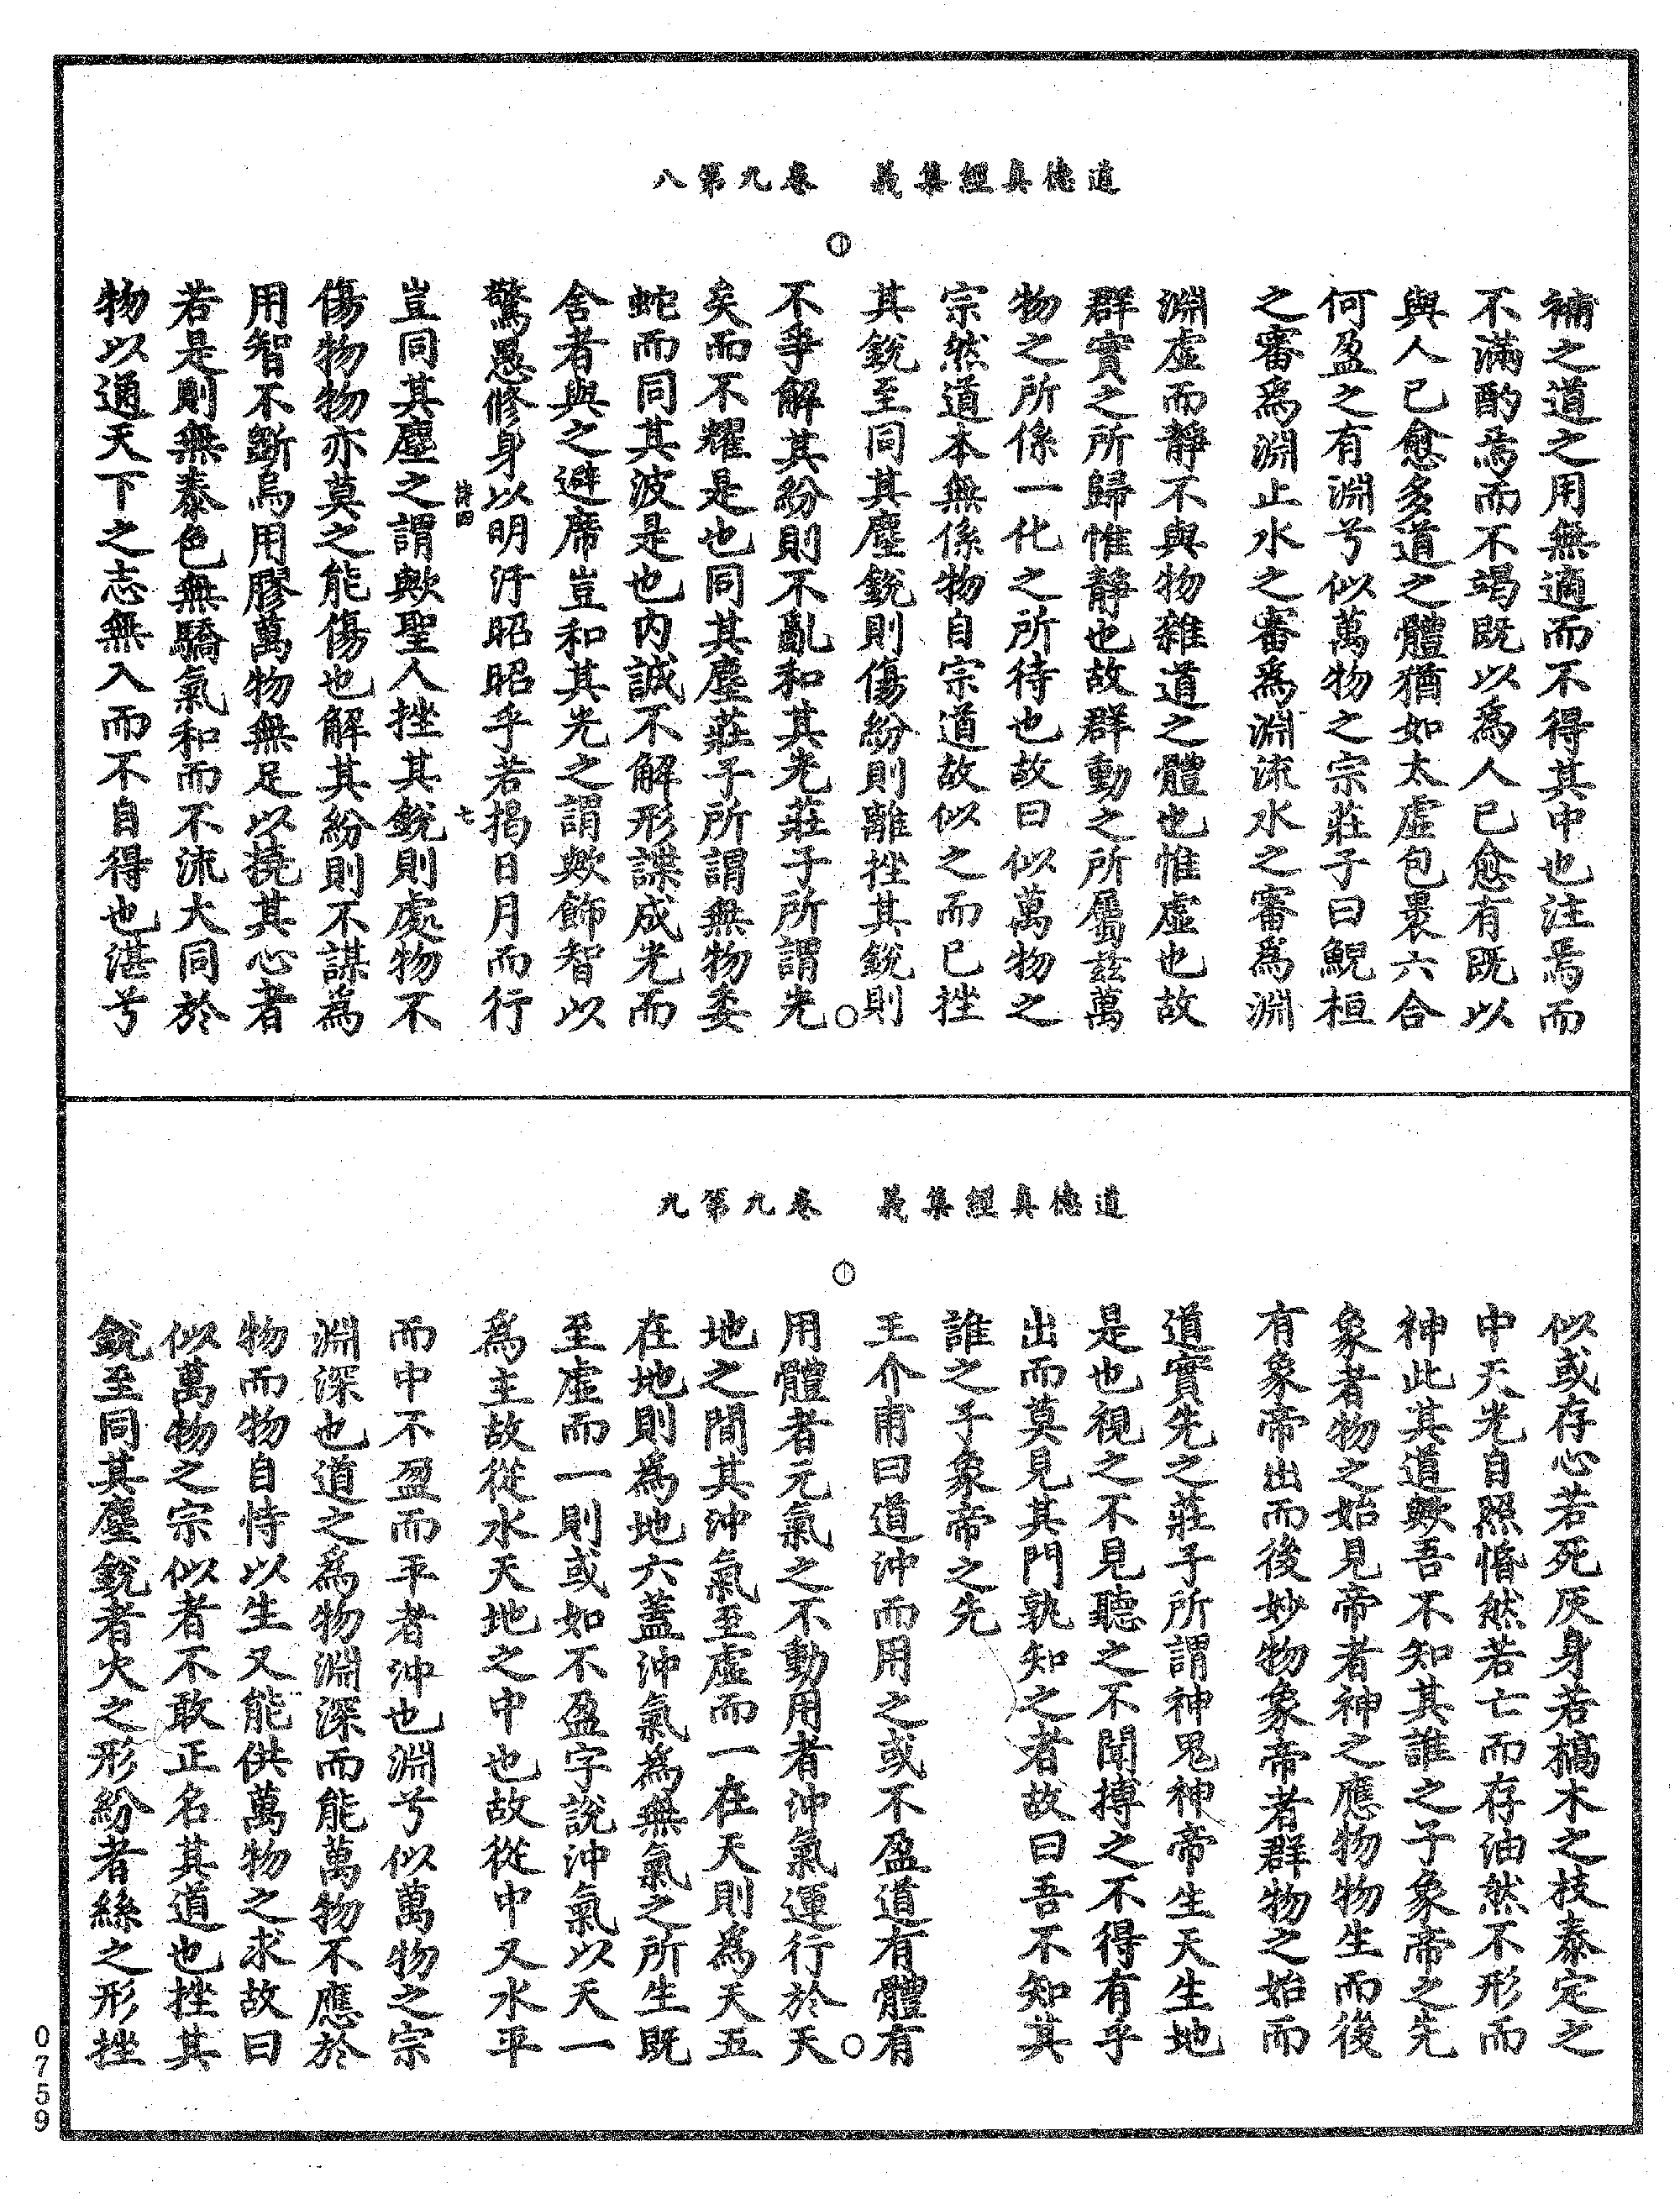 道德真經集義　卷九第八
補之道之用無適而不得其中也注焉而
不滿酌焉而不竭既以爲人已愈有既以
與人已愈多道之體猶如太虛包裹六合
何盈之有淵兮似萬物之宗莊子曰鯢桓
之審爲淵止水之審爲淵流水之審爲淵
淵虛而靜不與物雜道之體也惟虛也故
群實之所歸惟靜也故群動之所屬茲萬
物之所係一化之所待也故曰似萬物之
宗然道本無係物自宗道故似之而已挫
其銳至同其塵銳則傷紛則離挫其銳則
不爭解其紛則不亂和其光莊子所謂光
矣而不耀是也同其塵莊子所謂無物委
蛇而同其波是也內誠不解形諜成光而
舍者與之避席豈和其光之謂歟飾智以
驚愚修身以明汙昭昭乎若揭日月而行
七
豈同其塵之謂歟聖人挫其銳則處物不
傷物物亦莫之能傷也解其紛則不謀為
用智不斷烏用膠萬物無足以撓其心者
若是則無泰色無驕氣和而不流大同於
物以通天下之志無入而不自得也湛兮
道德真經集義　卷九第九
似或存心若死灰身若槁木之枝泰定之
中天光自照惛然若亡而存油然不形而
神此其道歟吾不知其誰之子象帝之先
象者物之始見帝者神之應物物生而後
有象帝出而後妙物象帝者群物之始而
道實先之莊子所謂神鬼神帝生天生地
是也視之不見聽之不聞搏之不得有乎
出而莫見其門孰知之者故曰吾不知其
誰之子象帝之先
王介甫曰道沖而用之或不盈道有體有
用體者元氣之不動用者沖氣運行於天
地之間其沖氣至虛而一在天則為天五
在地則為地六蓋沖氣為無氣之所生既
至虛而一則或如不盈字說沖氣以天一
爲主故從水天地之中也故從中又水平
而中不盈而平者沖也淵兮似萬物之宗
淵深也道之爲物淵深而能萬物不應於
物而物自恃以生又能供萬物之求故曰
似萬物之宗似者不敢正名其道也挫其
銳至同其塵銳者火之形紛者絲之形挫
0759